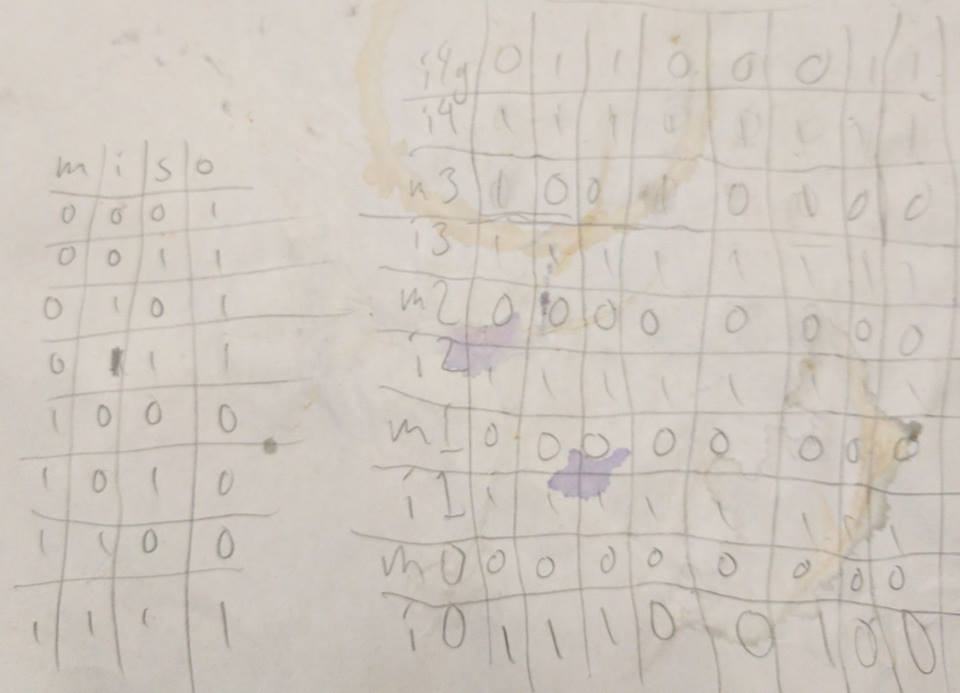 m i s o
0 0 0 1
0 0 1 1
0 1 0 1
0 1 1 1
1 0 0 0
1 0 1 0
1 1 0 0
1 1 1 1
i4g 0 1 1 0 0 0 1 1
i4 1 1 1 1 1 1 1 1
m3 1 0 0 1 0 1 0 0
i3 1 1 1 1 1 1 1 1
m2 0 0 0 0 0 0 0 0
i2 1 1 1 1 1 1 1 1
m1 0 0 0 0 0 0 0 0
i1 1 1 1 1 1 1 1 1
m0 0 0 0 0 0 0 0 0
i0 1 1 1 0 0 1 0 0